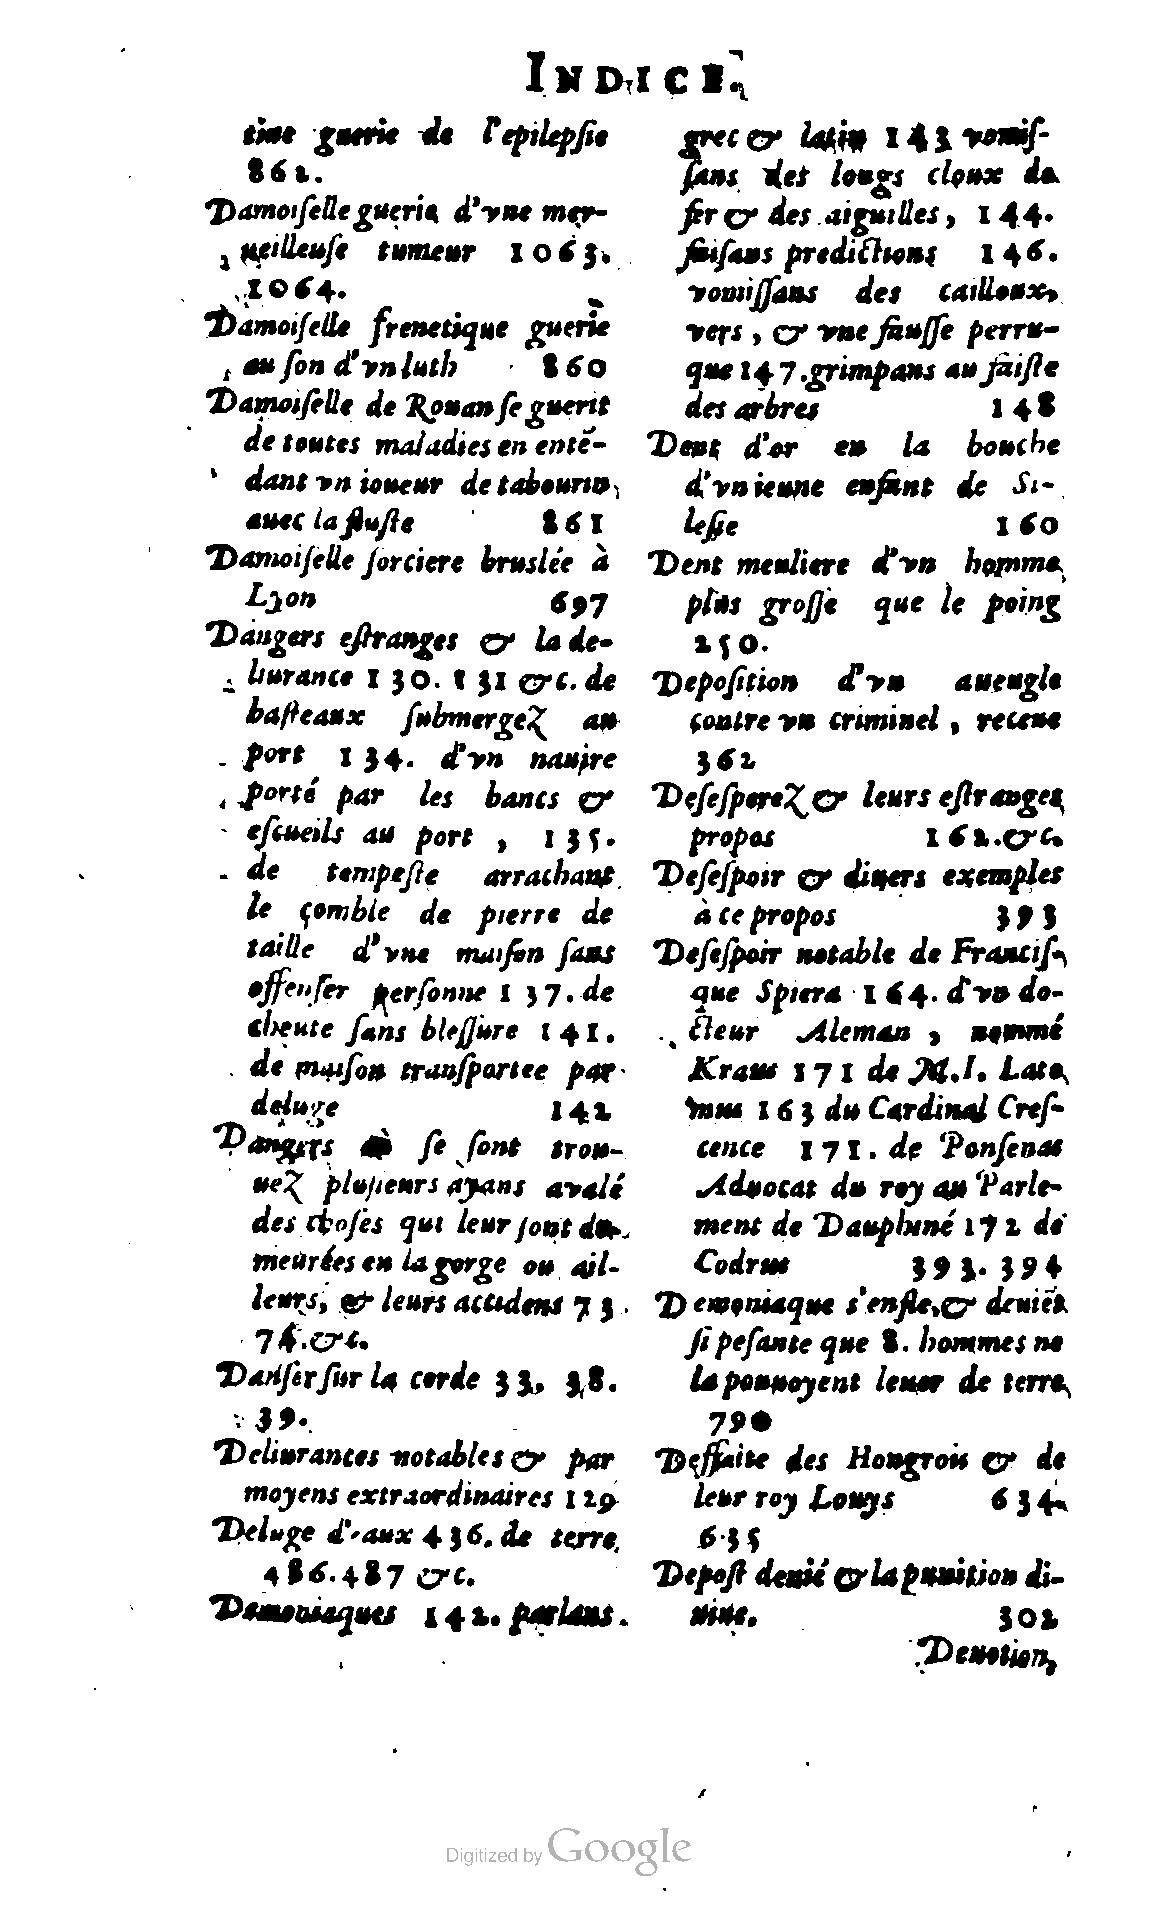 INDICE.
tine guerie de l'epilepſie
862.
Damoiſelle guerie d'vne mer-
ueilleuſe tumeur 1063.
1064.
Damoiſelle frenetique guerie
au ſon d'vn luth 860
Damoiſelle de Rouan ſe guerit
de toutes maladies en entē-
dant vn ioueur de tabourin
auec la fluſte 861
Damoiſelle ſorciere bruslée à
Lyon 697
Dangers eſtranges & la de-
liurance 130. 131 &c. de
baſteaux ſubmergez au
port 134. d'vn nauire
porté par les bancs &
eſcueils au port, 135.
de tempeſte arrachant
le comble de pierre de
taille d'vne maiſon ſans
offenſer perſonne 137. de
cheute ſans bleſſure 141.
de maiſon tranſportee par
deluge 142
Dangers où ſe ſont trou-
uez pluſieurs ayans avalé
des choſes qui leur ſont de-
meurées en la gorge ou ail-
leurs, & leurs accidens 73.
74.&c.
Danſer ſur la corde 33, 38.
39.
Deliurances notables & par
moyens extraordinaires 129
Deluge d'eaux 436. de terre
486.487 &c.
Demoniaques 142. parlans
grec & latin 143 vomiſ-
ſans des longs cloux de
fer & des aiguilles, 144.
faiſans predictions 146.
vomiſſans des cailloux,
vers, & vne fauſſe perru-
que 147. grimpans au faiſte
des arbres 148
Dent d'or en la bouche
d'vn ieune enfant de Si-
leſie 160
Dent meuliere d'vn homme
plus groſſe que le poing
250.
Depoſition d'vn aueugle
contre vn criminel, receue
362
Deſeſperez & leurs eſtranges
propos 162.&c.
Deſeſpoir & diuers exemples
à ce propos 393
Deſeſpoir notable de Franciſ-
que Spiera 164. d'vn do-
cteur Aleman, nommé
Kraus 171 de M.I. Lato
mus 163 du Cardinal Creſ-
cence 171. de Ponſenas
Aduocat du roy au Parle-
ment de Dauphiné 172 de
Codrus 393. 394
Demoniaque s'enfle, & deuiēt
ſi peſante que 8. hommes ne
la pouuoyent leuer de terre
790
Deffaite des Hongrois & de
leur roy Louys 634.
635
Depoſt denié & la punition di-
uine. 302
Deuotion,
Digitized by Google